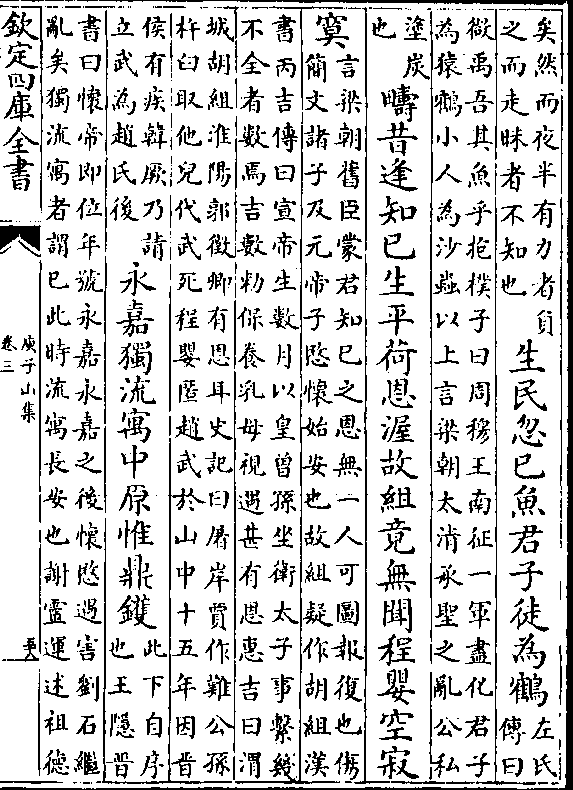 矣然而夜半有力者負
之而走昧者不知也
生民忽已魚君子徒為鶴
左氏
傳曰
微禹吾其魚乎抱樸子曰周穆王南征一軍盡化君子
為猿鶴小人為沙蟲以上言梁朝太清承聖之亂公私
塗炭
也
疇昔逢知已生平荷恩渥故組竟無聞程嬰空寂
寞
言梁朝舊臣蒙君知已之恩無一人可圖報復也傷
簡文諸子及元帝子愍懷始安也故組疑作胡組漢
書丙吉傳曰宣帝生數月以皇曾孫坐衛太子事繫幾
不全者數焉吉數勑保養乳母視遇甚有恩惠吉曰渭
城胡組淮陽郭徵卿有恩耳史記曰屠岸賈作難公孫
杵臼取他兒代武死程嬰匿趙武於山中十五年因晋
侯有疾韓厥乃請
立武為趙氏後
永嘉獨流寓中原惟鼎鑊
此下自序
也王隱晋
書曰懷帝即位年號永嘉永嘉之後懷愍遇害劉石繼
亂矣獨流寓者謂已此時流寓長安也謝靈運述祖德
欽定四庫全書
庾子山集
卷三